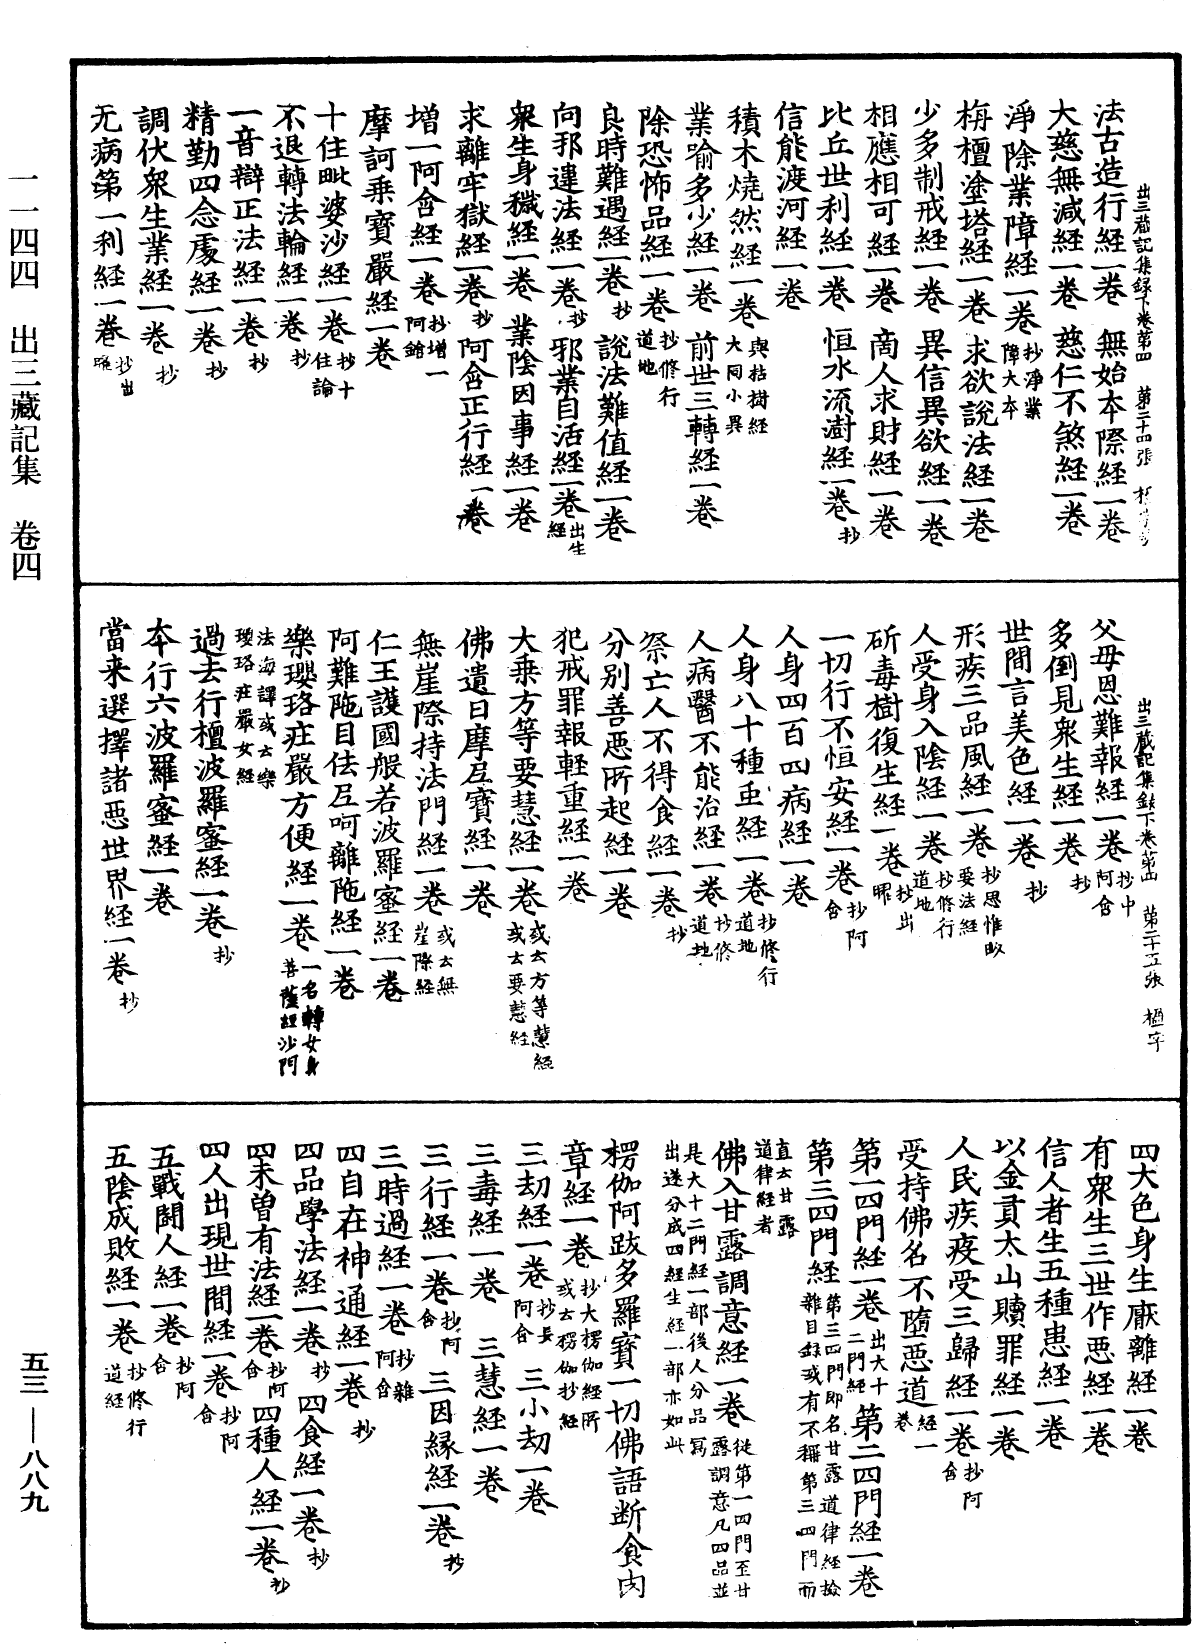 一一四四　出三藏記集　卷四
五三—八八九
出三藏記集錄下卷第四　第二十四張
法古造行經一卷　無始本際經一卷
大慈無減經一卷　慈仁不煞經一卷
淨除業障經一卷抄淨業障大本
栴檀塗塔經一卷　求欲說法經一卷
少多制戒經一卷　異信異欲經一卷
相應相可經一卷　商人求財經一卷
比丘世利經一卷　恒水流澍經一卷抄
信能渡河經一卷
積木燒然經一卷與枯樹經大同小異
業喻多少經一卷　前世三轉經一卷
除恐怖品經一卷抄修行道地
良時難遇經一卷抄　說法難值經一卷
向邪違法經一卷抄　邪業自活經一卷出生經
衆生身穢經一卷　業陰因事經一卷
求離牢獄經一卷抄　阿含正行經一卷
增一阿含經一卷抄增一阿鋡
摩訶乘寶嚴經一卷
十住毗婆沙經一卷抄十住論
不退轉法輪經一卷抄
一音辯正法經一卷抄
精勤四念處經一卷抄
調伏衆生業經一卷抄
无病第一利經一卷抄出曜
出三藏記集錄下卷第四　第二十五張　楹字
父母恩難報經一卷抄中阿含
多倒見衆生經一卷抄
世間言美色經一卷抄
形疾三品風經一卷抄思惟略要法經
人受身入陰經一卷抄修行道地
斫毒樹復生經一卷抄出曜
一切行不恒安經一卷抄阿含
人身四百四病經一卷
人身八十種虫經一卷抄修行道地
人病醫不能治經一卷抄修道地
祭亡人不得食經一卷抄
分別善惡所起經一卷
犯戒罪報輕重經一卷
大乘方等要慧經一卷或云方等慧經或云要慧經
佛遺日摩尼寶經一卷
無崖際持法門經一卷或云無崖際經
仁王護國般若波羅蜜經一卷
阿難陁目佉尼呵離陁經一卷
樂瓔珞莊嚴方便經一卷一名轉女身菩薩經沙門
法海譯或云樂瓔珞莊嚴女經
過去行檀波羅蜜經一卷抄
本行六波羅蜜經一卷
當来選擇諸惡世界經一卷抄
四大色身生厭離經一卷
有衆生三世作惡經一卷
信人者生五種患經一卷
以金貢太山贖罪經一卷
人民疾疫受三歸經一卷抄阿含
受持佛名不墮惡道經一卷
第一四門經一卷出大十二門經　第二四門經一卷
第三四門經第三四門即名甘露道律經撿雜目錄或有不稱第三四門而
直云甘露道律經者
佛入甘露調意經一卷從第一四門至甘露調意凡四品並
是大十二門經一部後人分品寫出遂分成四經生經一部亦如此
楞伽阿跋多羅寶一切佛語断食肉
章經一卷抄大楞伽經所或云楞伽抄經
三劫經一卷抄長阿含　三小劫一卷
三毒經一卷　三慧經一卷
三行經一卷抄阿含　三因緣經一卷抄
三時過經一卷抄雜阿含
四自在神通經一卷抄
四品學法經一卷抄　四食經一卷抄
四未曾有法經一卷抄阿含　四種人經一卷抄
四人出現世間經一卷抄阿含
五戰鬪人經一卷抄阿含
五陰成敗經一卷抄修行道經